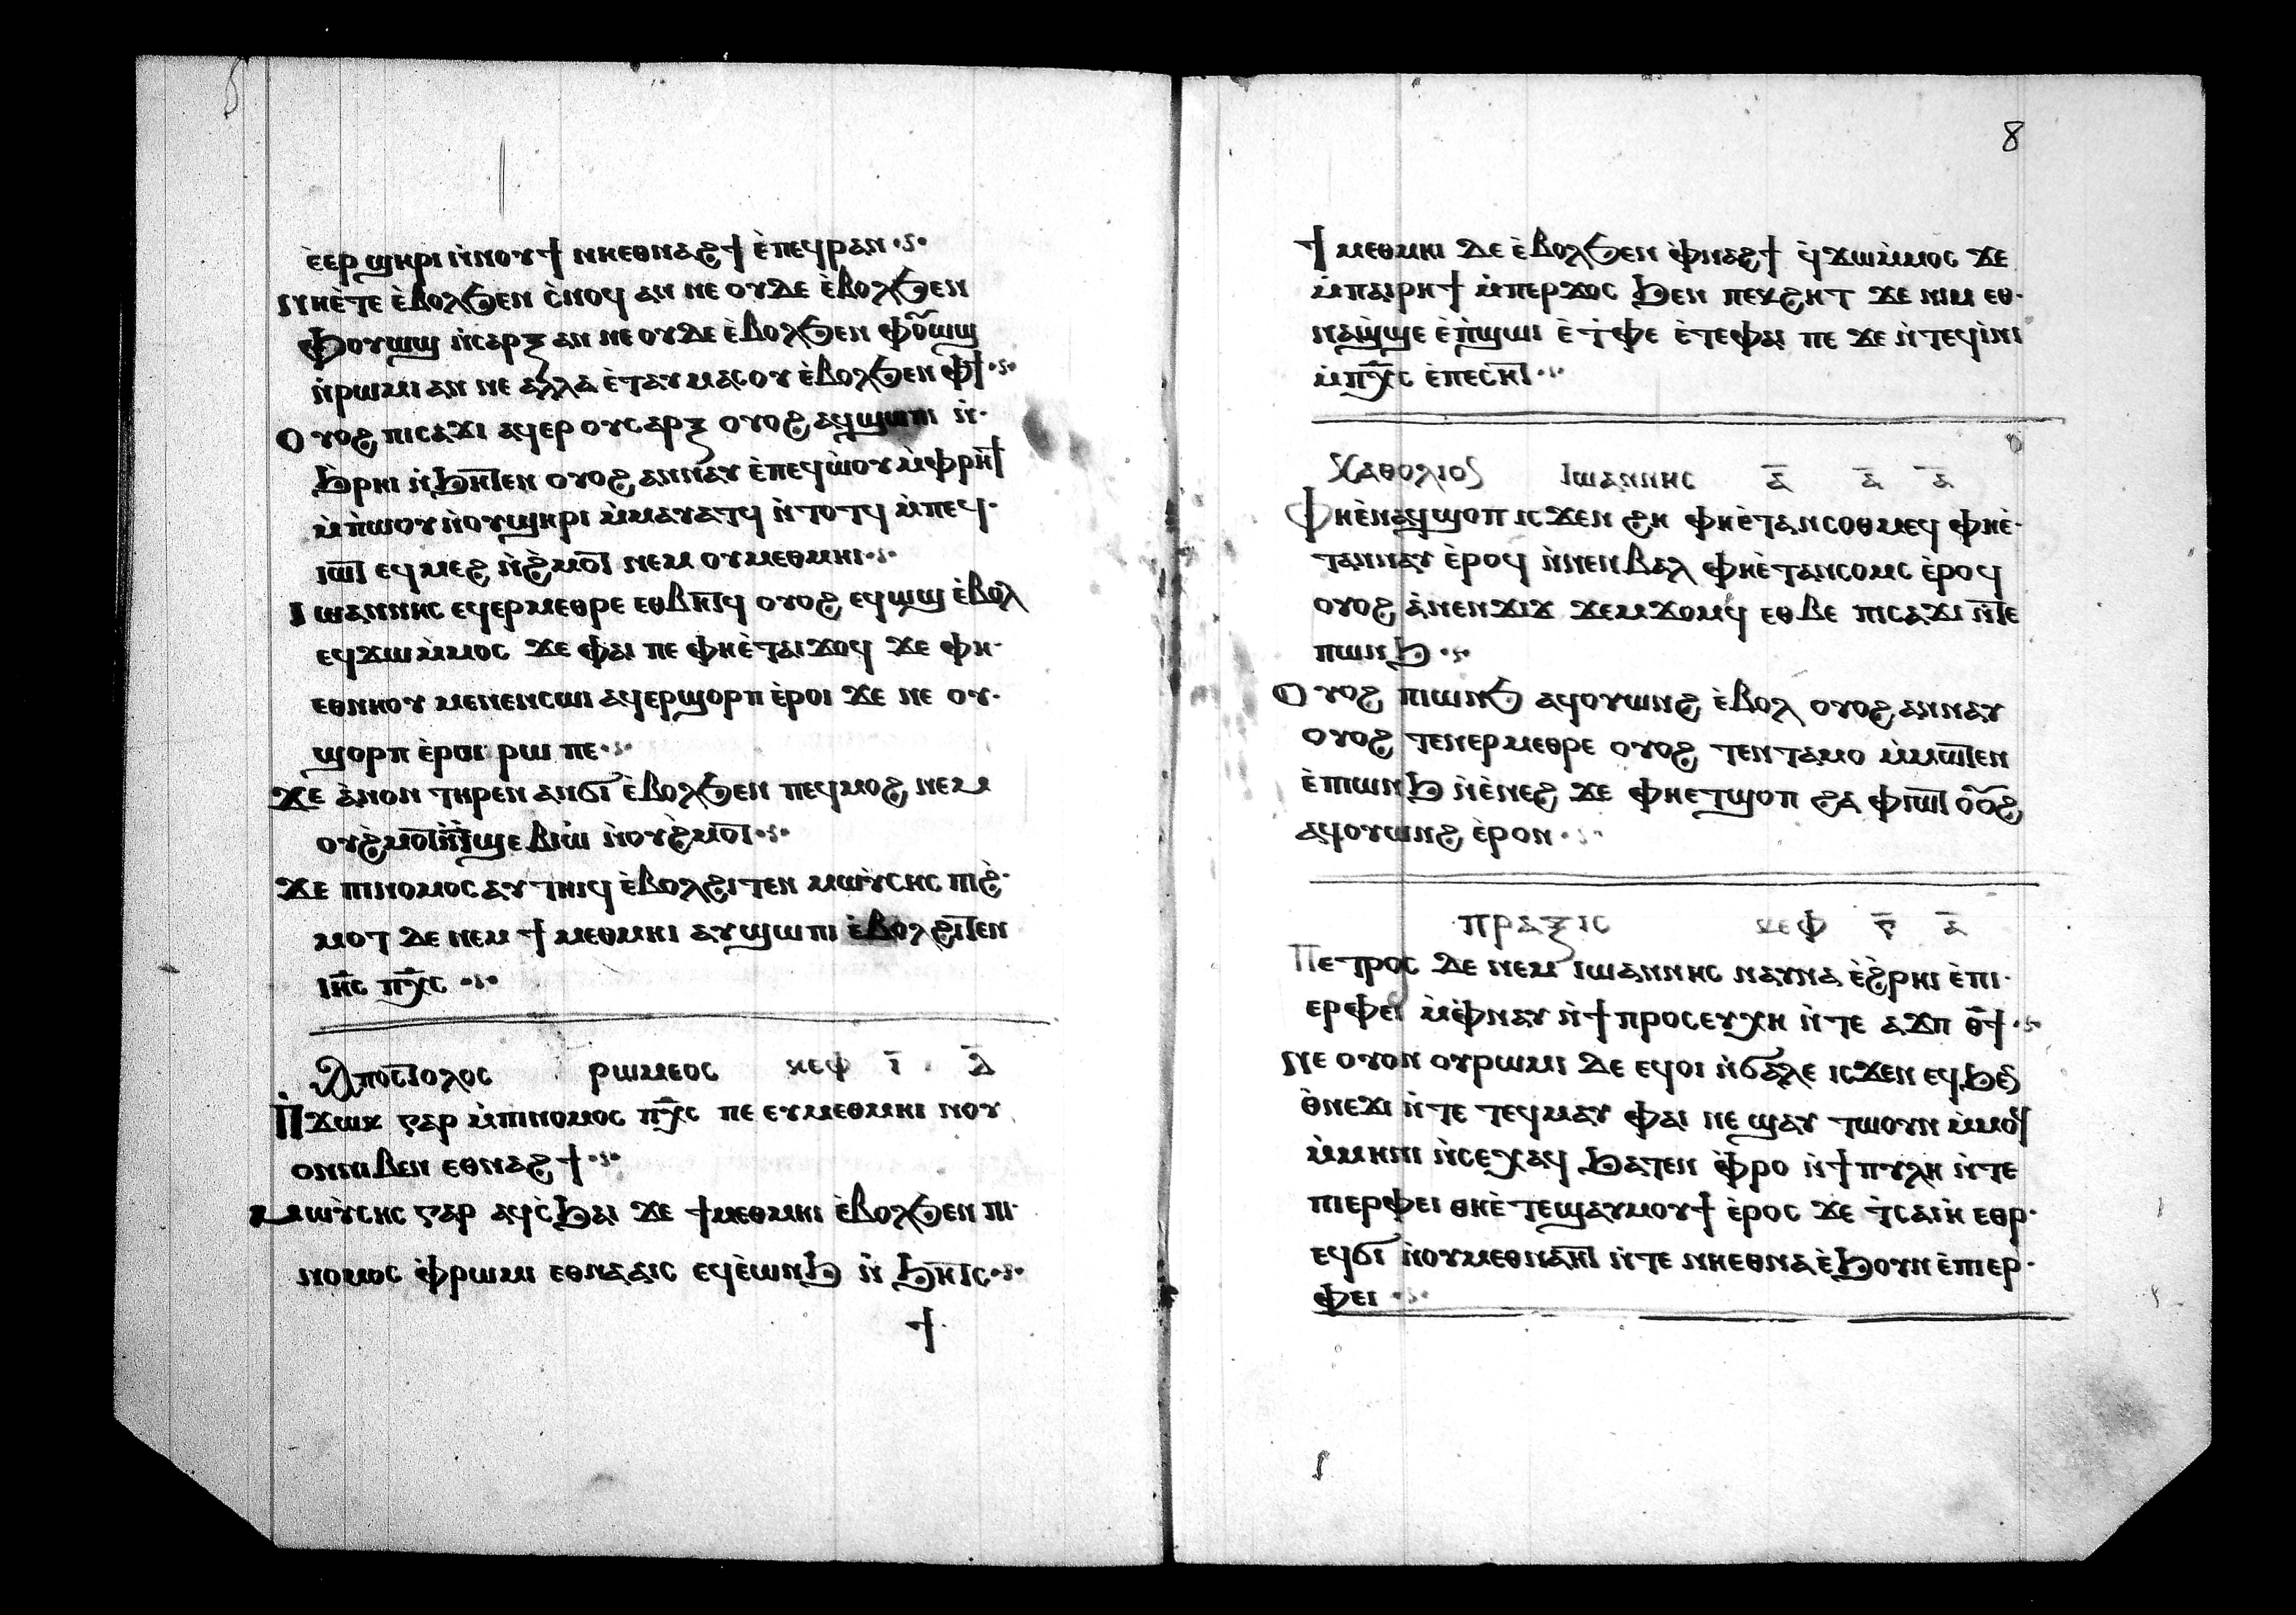 ⲉ̀ⲉⲣ ϣⲏⲣⲓ ⲛ̀ⲛⲟⲩϯ ⲛⲏⲉⲑⲛⲁϩϯ ⲉ̀ⲡⲉϥⲣⲁⲛ
ⲛⲏⲉ̀ⲧⲉ ⲉ̀ⲃⲟⲗϧⲉⲛ ⲥ̀ⲛⲟϥ ⲁⲛ ⲛⲉ ⲟⲩⲇⲉ ⲉ̀ⲃⲟⲗϧⲉⲛ
ⲫⲟⲩⲱϣ ⲛ̀ⲥⲁⲣⲝ ⲁⲛ ⲛⲉ ⲟⲩⲇⲉ ⲉ̀ⲃⲟⲗϧⲉⲛ ⲫⲟⲩⲱϣ
ⲛ̀ⲣⲱⲙⲓ ⲁⲛ ⲛⲉ ⲁⲗⲗⲁ ⲉ̀ⲧⲁⲩⲙⲁⲥⲟⲩ ⲉ̀ⲃⲟⲗϧⲉⲛ ⲫϯ
Ⲟⲩⲟϩ ⲡⲓⲥⲁϫⲓ ⲁϥⲉⲣ ⲟⲩⲥⲁⲣⲝ ⲟⲩⲟϩ ⲁϥϣⲱⲡⲓ ⲛ̀
ϧⲣⲏⲓ ⲛ̀ϧⲏⲧⲉⲛ ⲟⲩⲟϩ ⲁⲛⲛⲁⲩ ⲉ̀ⲡⲉϥⲱ̀ⲟⲩ ⲙ̀ⲫⲣⲏϯ
ⲙ̀ⲡ̀ⲱⲟⲩ ⲛ̀ⲟⲩϣⲏⲣⲓ ⲙ̀ⲙⲁⲩⲁⲧϥ ⲛ̀ⲧⲟⲧϥ ⲙ̀ⲡⲉϥ
ⲓⲱⲧ ⲉϥⲙⲉϩ ⲛ̀ϩ̀ⲙⲟⲧ ⲛⲉⲙ ⲟⲩⲙⲉⲑⲙⲏⲓ
Ⲓⲱⲁⲛⲛⲏⲥ ⲉϥⲉⲣⲙⲉⲑⲣⲉ ⲉⲑⲃⲏⲧϥ ⲟⲩⲟϩ ⲉϥⲱϣ ⲉ̀ⲃⲟⲗ
ⲉϥϫⲱⲙ̀ⲙⲟⲥ ϫⲉ ⲫⲁⲓ ⲡⲉ ⲫⲏⲉ̀ⲧⲁⲓϫⲟϥ ϫⲉ ⲫⲏ
ⲉⲑⲛⲏⲟⲩ ⲙⲉⲛⲉⲛⲥⲱⲓ ⲁϥⲉⲣϣⲟⲣⲡ ⲉ̀ⲣⲟⲓ ϫⲉ ⲛⲉ ⲟⲩ
ϣⲟⲣⲡ ⲉ̀ⲣⲟⲓ ⲣⲱ ⲡⲉ
Ϫⲉ ⲁ̀ⲛⲟⲛ ⲧⲏⲣⲉⲛ ⲁⲛϭⲓ ⲉ̀ⲃⲟⲗϧⲉⲛ ⲡⲉϥⲙⲟϩ ⲛⲉⲙ
ⲟⲩϩ̀ⲙⲟⲧ ⲛ̀ⲧ̀ϣⲉⲃⲓⲱ̀ ⲛ̀ⲟⲩϩ̀ⲙⲟⲧ
Ϫⲉ ⲡⲓⲛⲟⲙⲟⲥ ⲁⲩⲧⲏⲓϥ ⲉ̀ⲃⲟⲗϩⲓⲧⲉⲛ ⲙⲱⲩ̀ⲥⲏⲥ ⲡⲓϩ̀
ⲙⲟⲧ ⲇⲉ ⲛⲉⲙ ϯⲙⲉⲑⲙⲏⲓ ⲁⲩϣⲱⲡⲓ ⲉ̀ⲃⲟⲗϩⲓⲧⲉⲛ
ⲓⲏ̅ⲥ ⲡⲭ̅ⲥ
Ⲁⲡⲟⲥⲧⲟⲗⲟⲥ ⲣⲱⲙⲉⲟⲥ ⲕⲉⲫ ⲓ̅ ⲇ̅
Ⲡ̀ϫⲱⲕ ⲅⲁⲣ ⲙ̀ⲡⲓⲛⲟⲙⲟⲥ ⲡⲭ̅ⲥ ⲡⲉ ⲉⲩⲙⲉⲑⲙⲏⲓ ⲛⲟⲩ
ⲟⲛⲛⲓⲃⲉⲛ ⲉⲑⲛⲁϩϯ
Ⲙⲱⲩ̀ⲥⲏⲥ ⲅⲁⲣ ⲁϥⲥ̀ϧⲁⲓ ϫⲉ ϯⲙⲉⲑⲙⲏⲓ ⲉ̀ⲃⲟⲗϧⲉⲛ ⲡⲓ
ⲛⲟⲙⲟⲥ ⲫ̀ⲣⲱⲙⲓ ⲉⲑⲛⲁⲁⲓⲥ ⲉϥⲉ̀ⲱⲛϧ ⲛ̀ϧⲏⲧⲥ
ϯ
8
ϯⲙⲉⲑⲙⲏⲓ ⲇⲉ ⲉ̀ⲃⲟⲗϧⲉⲛ ⲫ̀ⲛⲁϩϯ ϥ̀ϫⲱⲙ̀ⲙⲟⲥ ϫⲉ
ⲙ̀ⲡⲁⲓⲣⲏϯ ⲙ̀ⲡⲉⲣϫⲟⲥ ϧⲉⲛ ⲡⲉⲕϩⲏⲧ ϫⲉ ⲛⲓⲙ ⲉⲑ
ⲛⲁϣ̀ϣⲉ ⲉ̀ⲡ̀ϣⲱⲓ ⲉ̀ⲧ̀ⲫⲉ ⲉ̀ⲧⲉⲫⲁⲓ ⲡⲉ ϫⲉ ⲛ̀ⲧⲉϥⲓ̀ⲛⲓ
ⲙ̀ⲡⲭ̅ⲥ ⲉ̀ⲡⲉⲥⲏⲧ
Ⲕⲁⲑⲟⲗⲓⲟⲥ Ⲓⲱⲁⲛⲛⲏⲥ ⲁ̅ ⲁ̅ ⲁ̅
Ⲫⲏⲉ̀ⲛⲁϥϣⲟⲡ ⲓⲥϫⲉⲛ ϩⲏ ⲫⲏⲉ̀ⲧⲁⲛⲥⲟⲑⲙⲉϥ ⲫⲏⲉ̀
ⲧⲁⲛⲛⲁⲩ ⲉ̀ⲣⲟϥ ⲛ̀ⲛⲉⲛⲃⲁⲗ ⲫⲏⲉ̀ⲧⲁⲛⲥⲟⲙⲥ ⲉ̀ⲣⲟϥ
ⲟⲩⲟϩ ⲁ̀ⲛⲉⲛϫⲓϫ ϫⲉⲙϫⲟⲙϥ ⲉⲑⲃⲉ ⲡⲓⲥⲁϫⲓ ⲛ̀ⲧⲉ
ⲡⲱⲛϧ
Ⲟⲩⲟϩ ⲡⲓⲱⲛϧ ⲁϥⲟⲩⲱⲛϩ ⲉ̀ⲃⲟⲗ ⲟⲩⲟϩ ⲁⲛⲛⲁⲩ
ⲟⲩⲟϩ ⲧⲉⲛⲉⲣⲙⲉⲑⲣⲉ ⲟⲩⲟϩ ⲧⲉⲛⲧⲁⲙⲟ ⲙ̀ⲙⲱⲧⲉⲛ
ⲉ̀ⲡⲓⲱⲛϧ ⲛ̀ⲉ̀ⲛⲉϩ ϫⲉ ⲫⲏⲉⲧϣⲟⲡ ϩⲁ ⲫⲓⲱⲧ ⲟⲩⲟϩ
ⲁϥⲟⲩⲱⲛϩ ⲉ̀ⲣⲟⲛ
ⲡⲣⲁⲝⲓⲥ ⲕⲉⲫ ⲋ̅ ⲁ̅
Ⲡⲉⲧⲣⲟⲥ ⲇⲉ ⲛⲉⲙ Ⲓⲱⲁⲛⲛⲏⲥ ⲛⲁⲩⲛⲁ ⲉ̀ϩ̀ⲣⲏⲓ ⲉ̀ⲡⲓ
ⲉⲣⲫⲉⲓ ⲙ̀ⲫ̀ⲛⲁⲩ ⲛ̀ϯⲡⲣⲟⲥⲉⲩⲭⲏ ⲛ̀ⲧⲉ ⲁϫⲡ ⲑ̅ϯ
Ⲛⲉ ⲟⲩⲟⲛ ⲟⲩⲣⲱⲙⲓ ⲇⲉ ⲉϥⲟⲓ ⲛ̀ϭⲁⲗⲉ ⲓⲥϫⲉⲛ ⲉϥϧⲉⲛ
ⲑ̀ⲛⲉϫⲓ ⲛ̀ⲧⲉ ⲧⲉϥⲙⲁⲩ ⲫⲁⲓ ⲛⲉ ϣⲁⲩ ⲧⲱⲟⲩⲛ ⲙ̀ⲙⲟϥ
ⲙ̀ⲙⲏⲛⲓ ⲛ̀ⲥⲉⲭⲁϥ ϧⲁⲧⲉⲛ ⲫ̀ⲣⲟ ⲛ̀ϯⲡⲩⲗⲏ ⲛ̀ⲧⲉ
ⲡⲓⲉⲣⲫⲉⲓ ⲑⲏⲉ̀ⲧⲉϣⲁⲩⲙⲟⲩϯ ⲉ̀ⲣⲟⲥ ϫⲉ ϯⲥⲁⲓⲏ ⲉⲑⲣ
ⲉϥϭⲓ ⲛ̀ⲟⲩⲙⲉⲑⲛⲁⲏⲧ ⲛ̀ⲧⲉ ⲛⲏⲉⲑⲛⲁ ⲉ̀ϧⲟⲩⲛ ⲉ̀ⲡⲓⲉⲣ
ⲫⲉⲓ